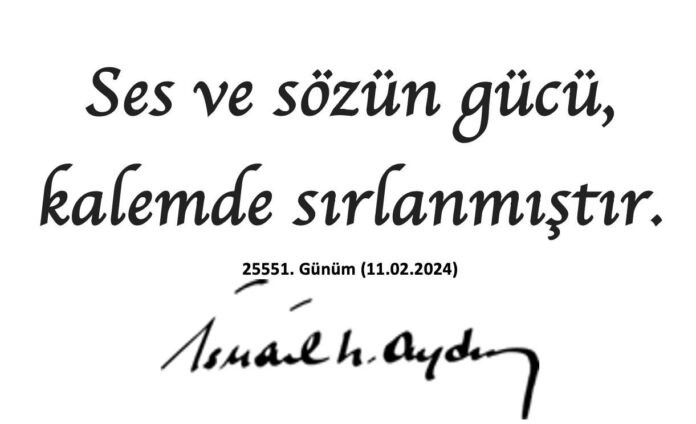 Ses ve sözün gücü,
kalemde sırlanmıştır.
25551. Günüm (11.02.2024)
İsmail h. Aydın